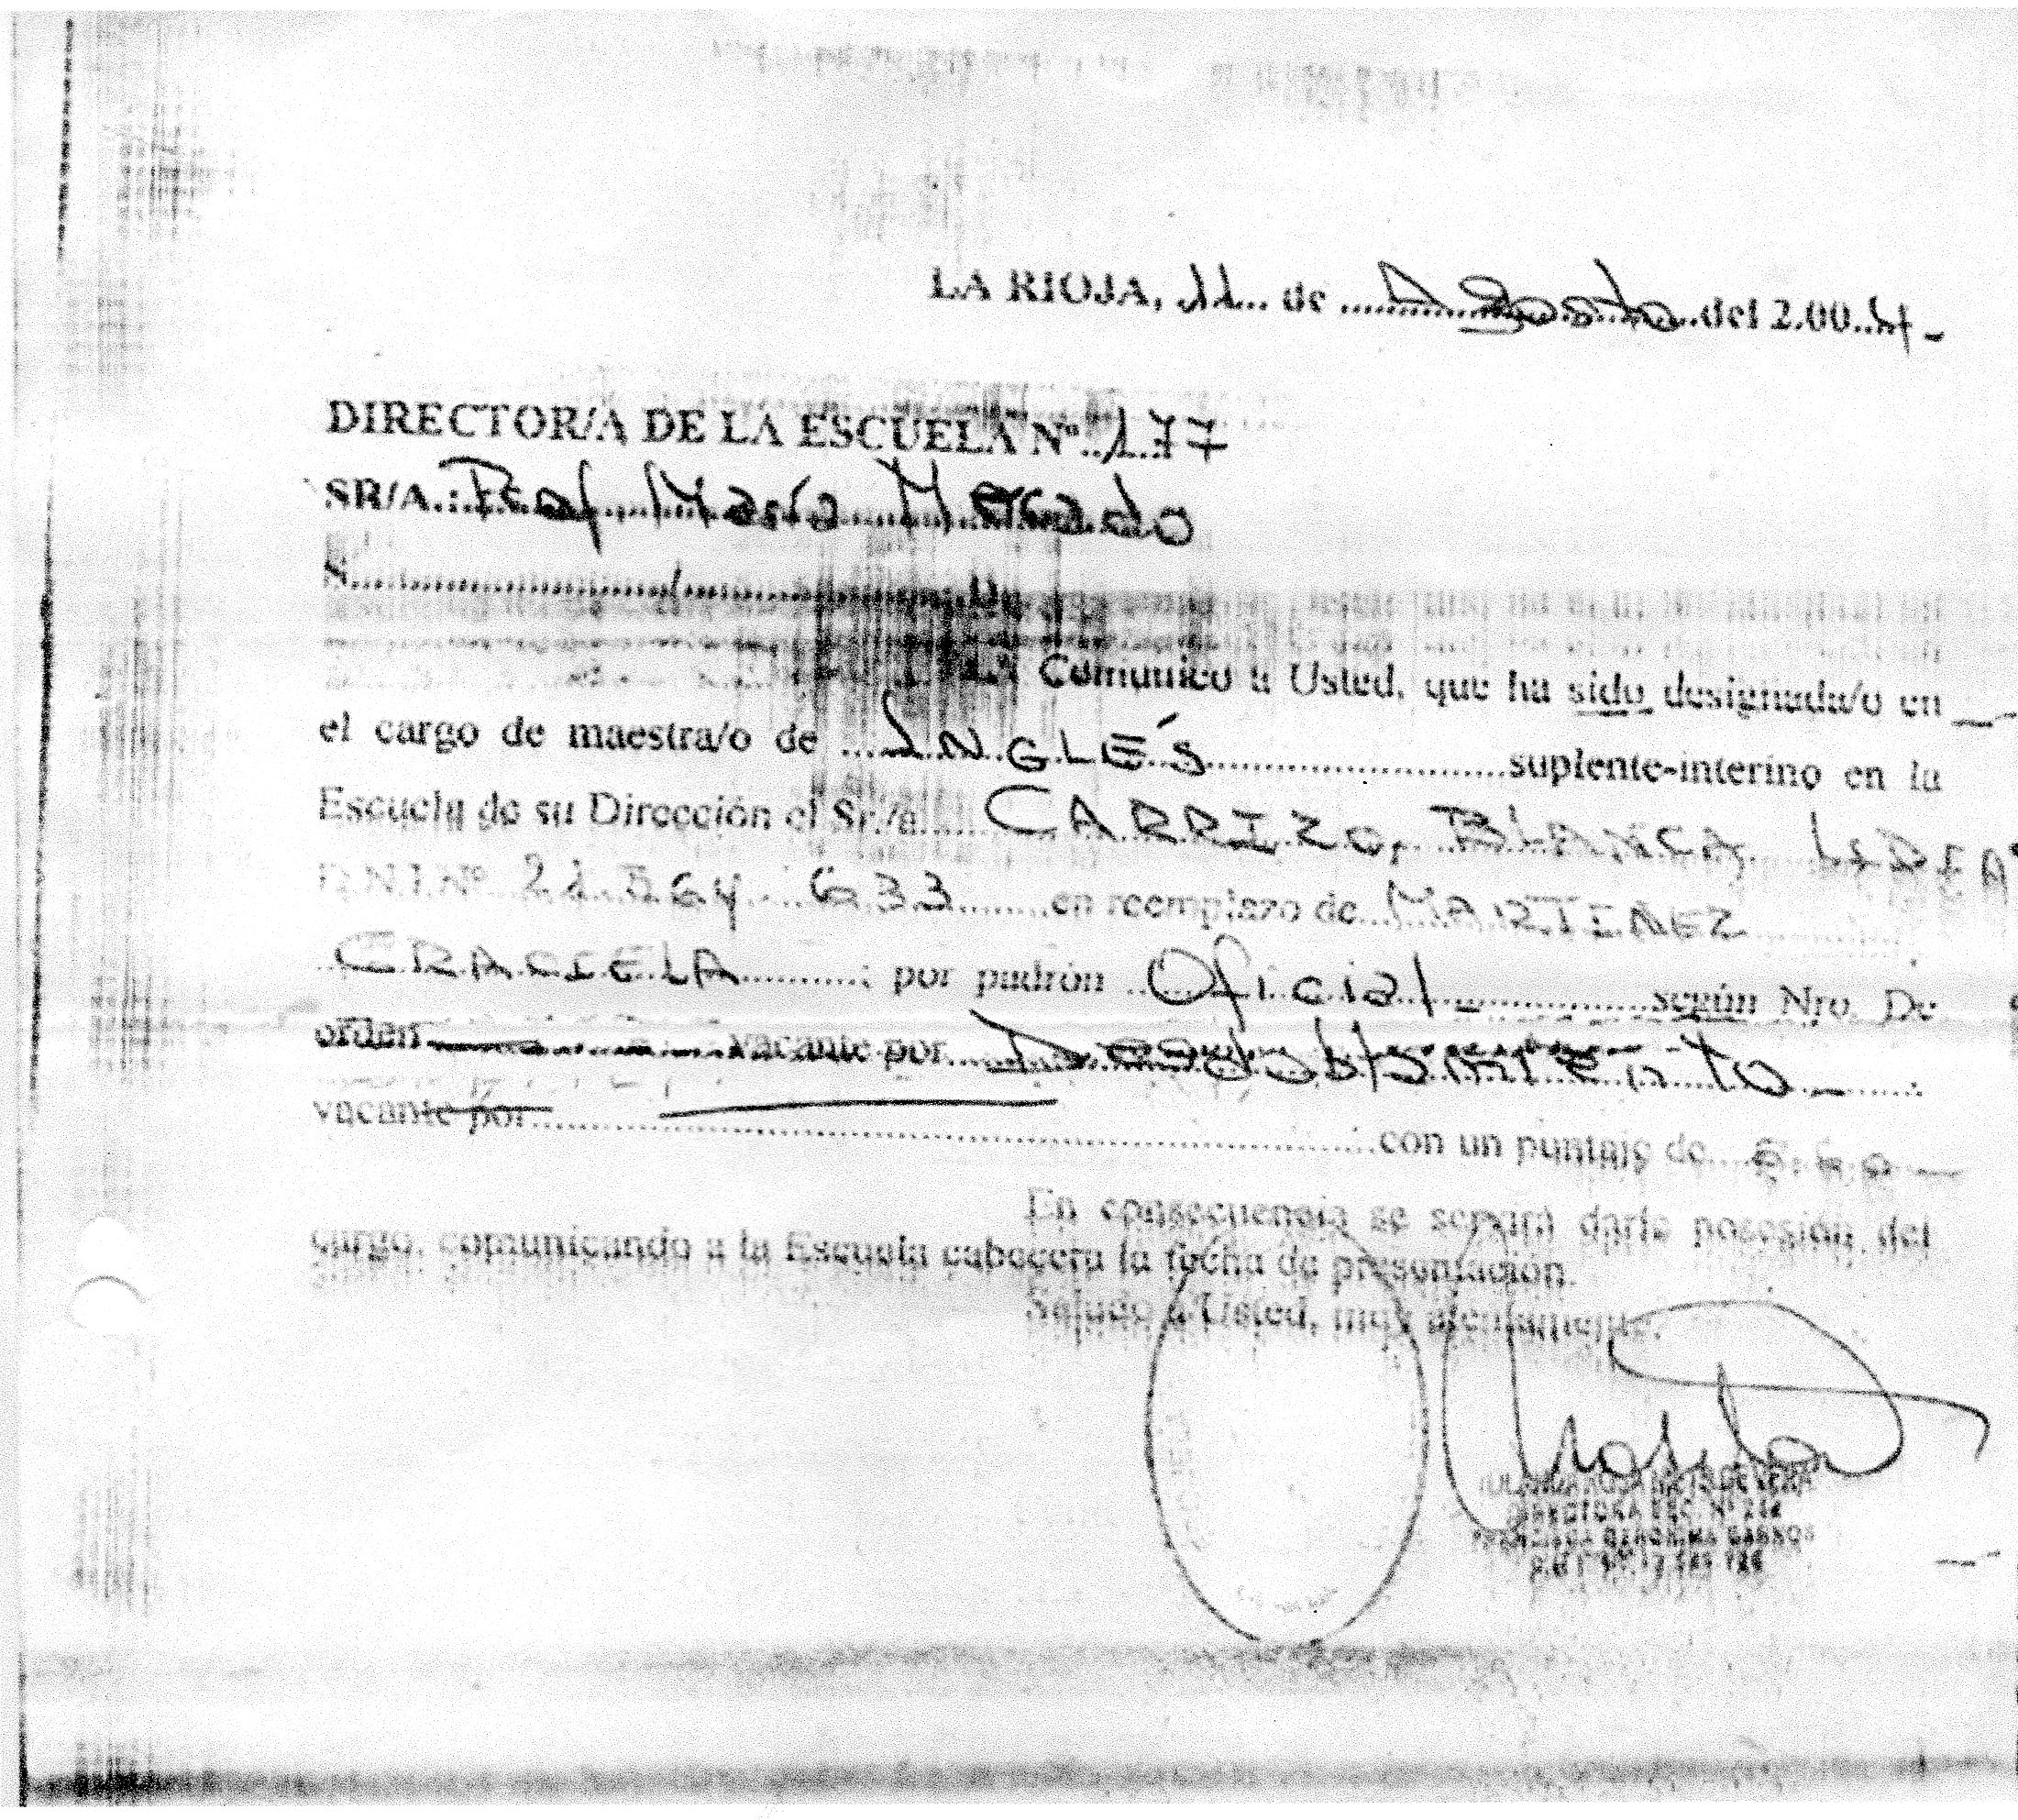 LA RIOJA, 11... de ........Agosto...del 2.00..4.-
DIRECTOR/A DE LA ESCUELA Nº..177
SR/A.: Prof. María Mercado
S............................/........................D.
Comunico a Usted, que ha sido designada/o en
el cargo de maestra/o de ....INGLÉS........................suplente-interino en la
Escuela de su Dirección el Sr./a...... CARRIZO, BLANCA
D.N.I.Nº 21.564.633.........en reemplazo de...MARTINEZ
GRACIELA............; por padrón ...Oficial................según Nro. De
orden ................vacante por.....Desdoblamiento..........;
vacante por...............................................................con un puntaje de
En consecuencia se servirá darle posesión del
cargo, comunicando a la Escuela cabecera la fecha de presentación.
Saludo a Usted, muy atentamente.
DIRECTORA ESC. Nº